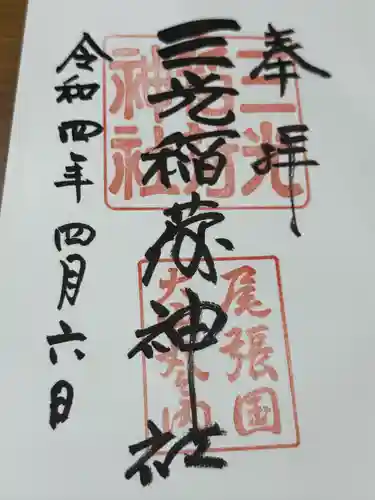 奉拝
三光稲荷神社
令和四年四月六日
三光
稲荷
神社
尾張国
犬山城内